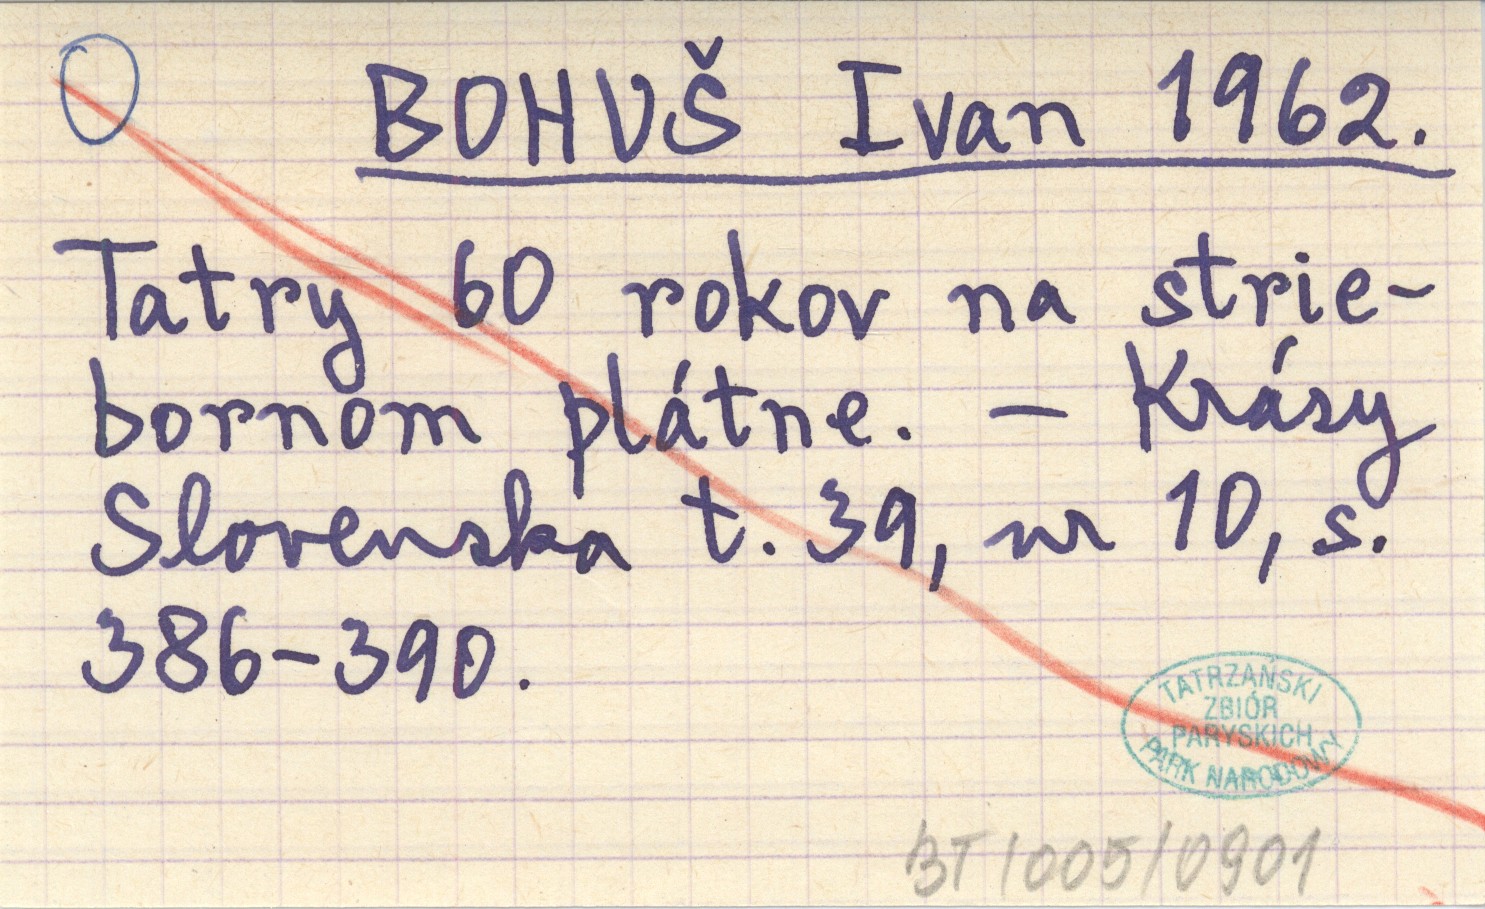 BOHUŠ Ivan 1962.
Tatry 60 rokov na strie-
bornom plátne. – Krásy
Slovenska t. 39, nr 10, s.
386–390.
TATRZAŃSKI
ZBIÓR
PARYSKICH
PARK NARODOWY
BT/005/0901